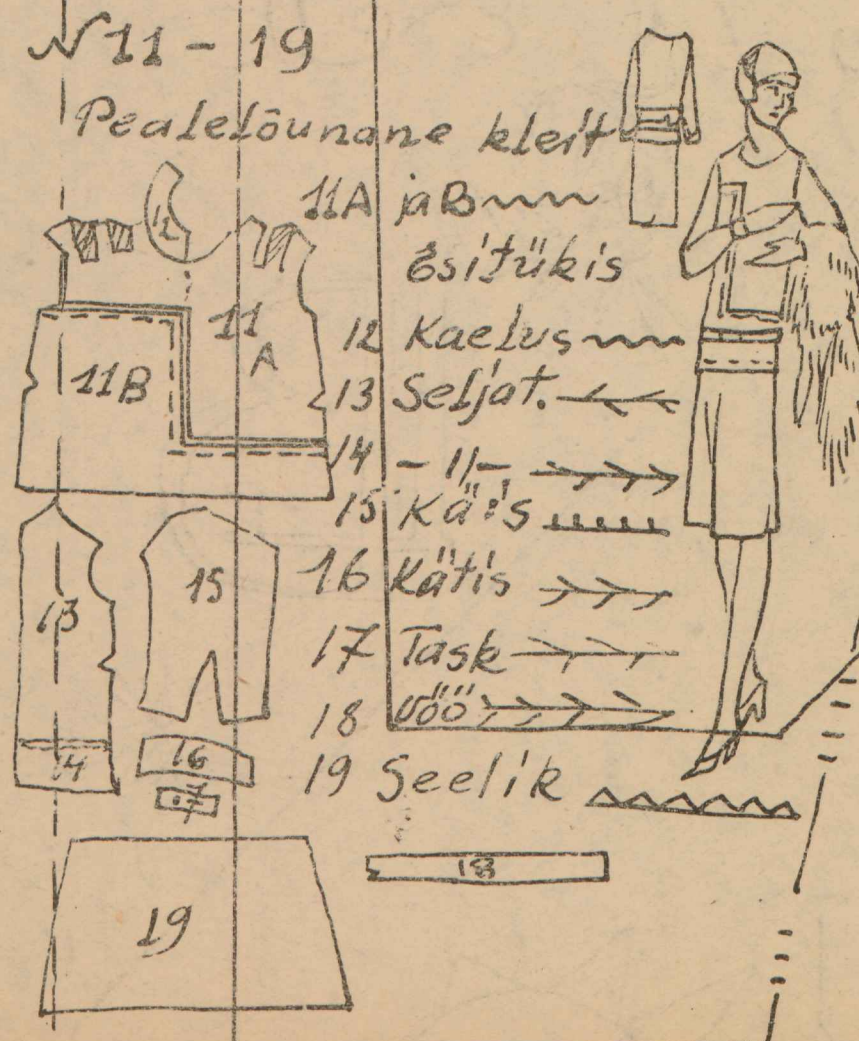 N 11 - 19
Pealelõunane kleit
11A ja B
Esitükis
12 Kaelus
13 Seljat.
14 - 11 -
15 Käis
16 Kätis
17 Task
18 Vöö
19 Seelik
12
11 A
11B
13
14
15
16
17
18
19